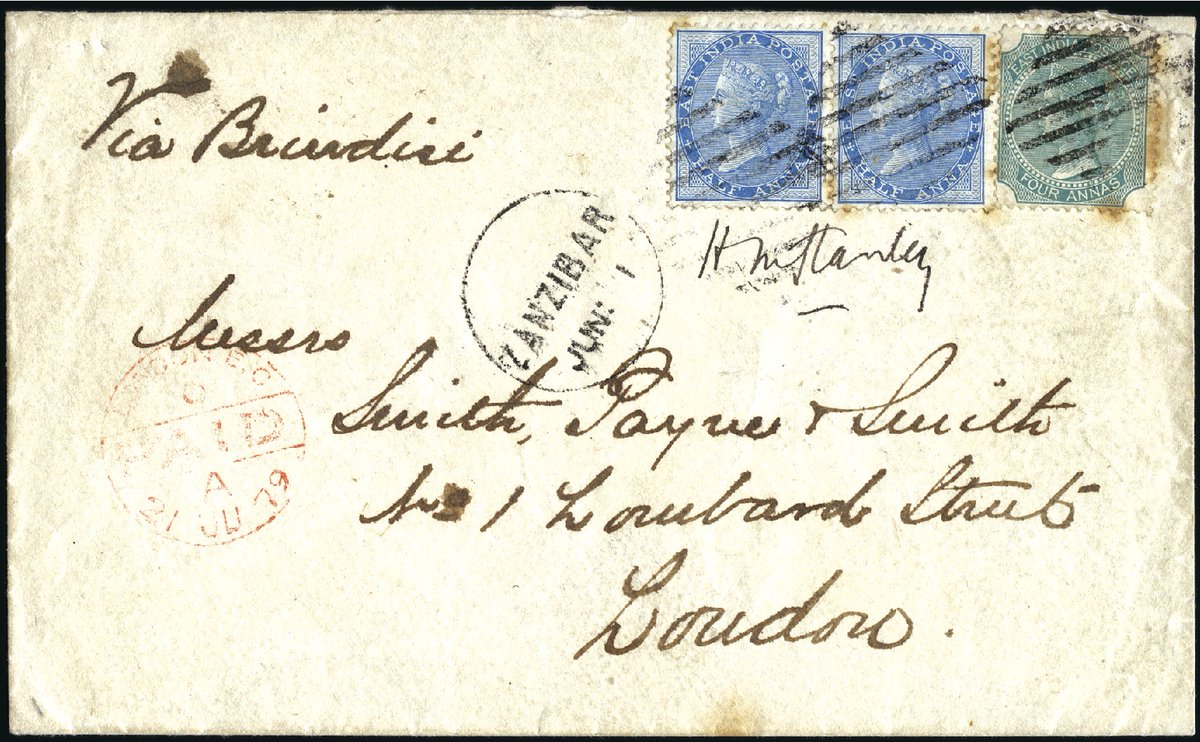 EAST INDIA POSTAGE
HALF ANNA
EAST INDIA POSTAGE
HALF ANNA
EAST INDIA POSTAGE
FOUR ANNAS
Via Brindisi
ZANZIBAR
JUN: 1
H M Stanley
Messrs
Smith, Payne & Smith
No 1 Lombard Street
London.
LONDON E.C
PAID
A
21 JU 79